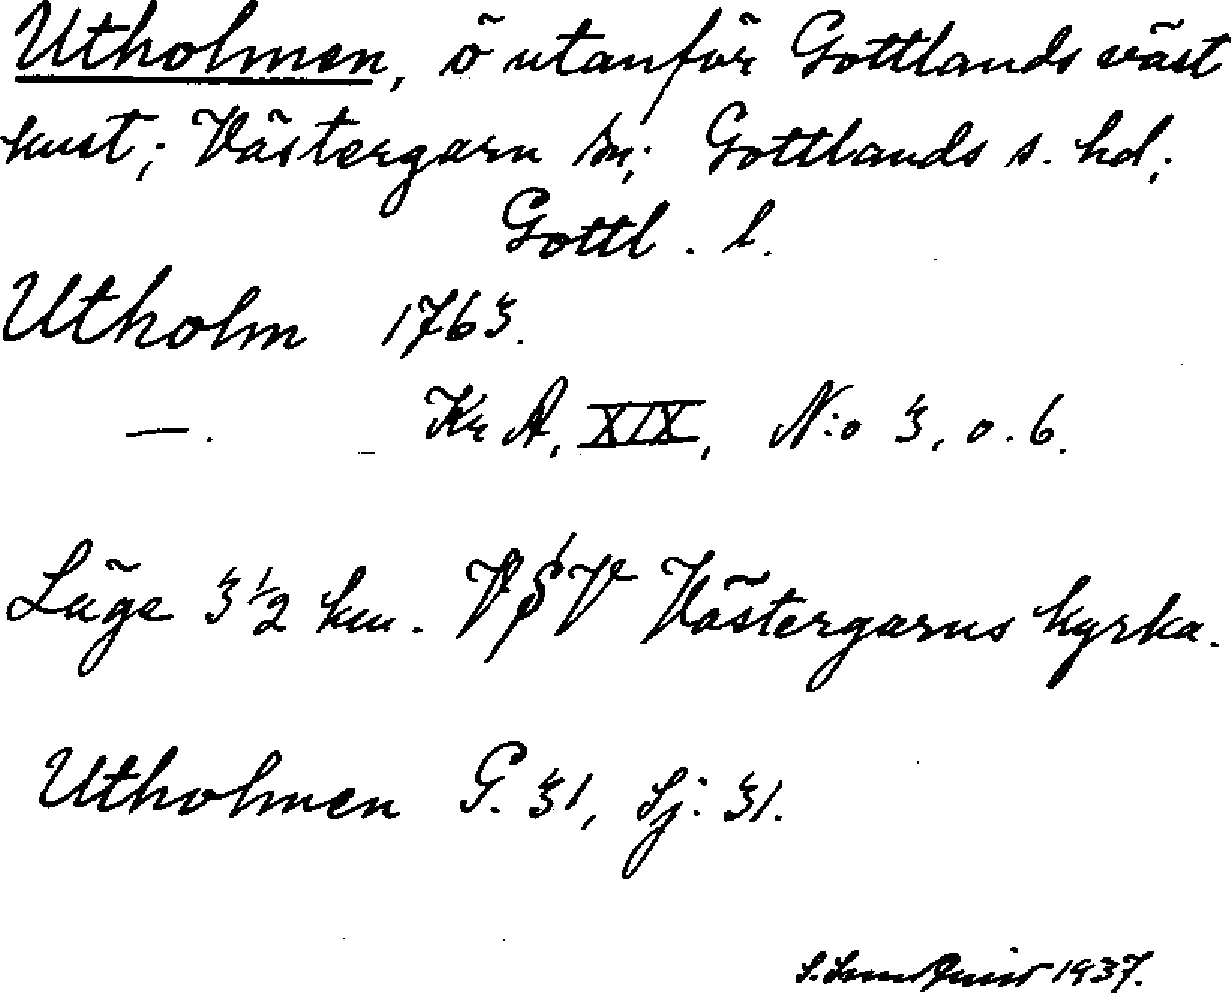 Utholmen, ö utanför Gottlands väst
kust; Västergarn sn; Gottlands s. hd;
Gottl. l.
Utholm 1763.
—. Kr A, XIX, N:o 3, o. 6.
Läge 3 1/2 km. VSV Västergarns kyrka.
Utholmen G. 31, Sj: 31.
1937.